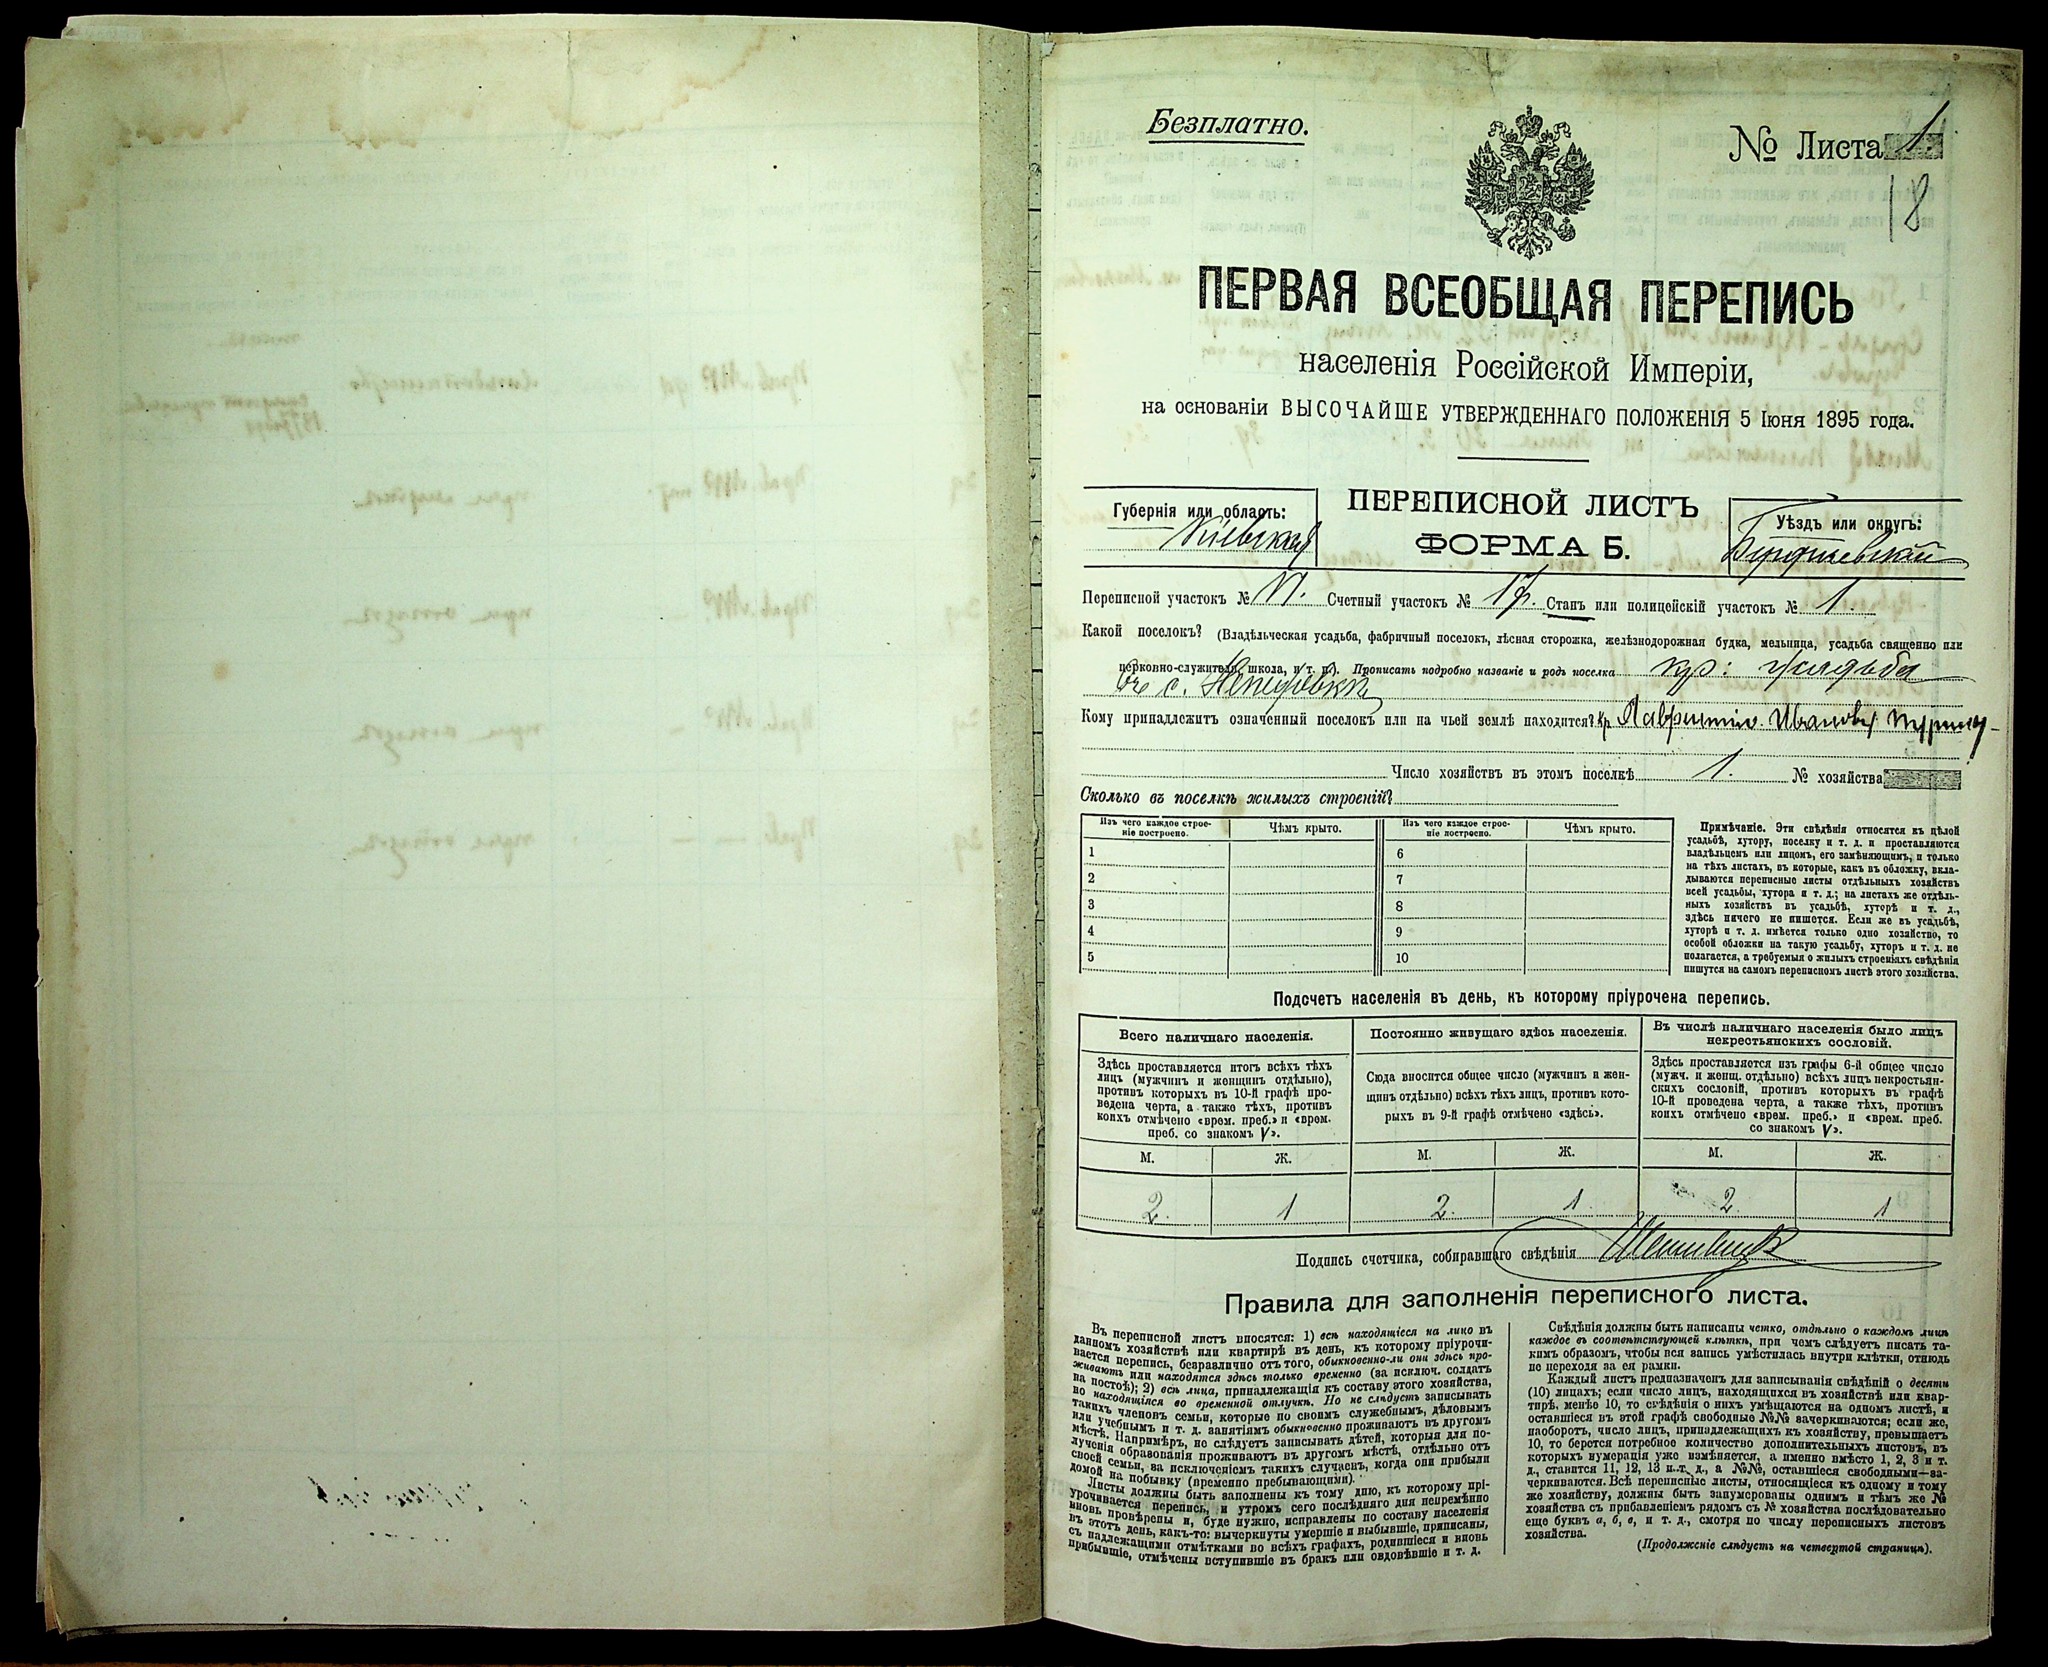 Безплатно.
№ Листа 1.
18
ПЕРВАЯ ВСЕОБЩАЯ ПЕРЕПИСЬ
населенія Россійской Имперіи,
на основаніи ВЫСОЧАЙШЕ УТВЕРЖДЕННАГО ПОЛОЖЕНІЯ 5 Іюня 1895 года.
Губернія или область:
Кіевская
ПЕРЕПИСНОЙ ЛИСТЪ
ФОРМА Б.
Уѣздъ или округъ:
Бердичевскій
Переписной участокъ № VI. Счетный участокъ № 1 Станъ или полицейскій участокъ № 1.
Какой поселокъ? (Владѣльческая усадьба, фабричный поселокъ, лѣсная сторожка, желѣзнодорожная будка, мельница, усадьба священно или
церковно-служителя, школа, и т. п.). Прописать подробно названіе и родъ поселка кр: усадьба
въ с.
Кому принадлежитъ означенный поселокъ или на чьей землѣ находится? Кр Иванову
Число хозяйствъ въ этомъ поселкѣ 1. № хозяйства
Сколько въ поселкѣ жилыхъ строеній?
Изъ чего каждое строеніе построено. Чѣмъ крыто. Изъ чего каждое строеніе построено. Чѣмъ крыто.
1 6
2 7
3 8
4 9
5 10
Примѣчаніе. Эти свѣдѣнія относятся къ цѣлой
усадьбѣ, хутору, поселку и т. д. и проставляются
владѣльцемъ или лицомъ, его замѣняющимъ, и только
на тѣхъ листахъ, въ которые, какъ въ обложку, вкла-
дываются переписные листы отдѣльныхъ хозяйствъ
всей усадьбы, хутора и т. д.; на листахъ же отдѣль-
ныхъ хозяйствъ въ усадьбѣ, хуторѣ и т. д.,
здѣсь ничего не пишется. Если же въ усадьбѣ,
хуторѣ и т. д. имѣется только одно хозяйство, то
особой обложки на такую усадьбу, хуторъ и т. д. не
полагается, а требуемыя о жилыхъ строеніяхъ свѣдѣнія
пишутся на самомъ переписномъ листѣ этого хозяйства.
Подсчетъ населенія въ день, къ которому пріурочена перепись.
Всего наличнаго населенія.
Здѣсь проставляется итогъ всѣхъ тѣхъ
лицъ (мужчинъ и женщинъ отдѣльно),
противъ которыхъ въ 10-й графѣ про-
ведена черта, а также тѣхъ, противъ
коихъ отмѣчено «врем. преб.» и «врем.
преб. со знакомъ V».
Постоянно живущаго здѣсь населенія.
Сюда вносится общее число (мужчинъ и жен-
щинъ отдѣльно) всѣхъ тѣхъ лицъ, противъ кото-
рыхъ въ 9-й графѣ отмѣчено «здѣсь».
Въ числѣ наличнаго населенія было лицъ
некрестьянскихъ сословій.
Здѣсь проставляется изъ графы 6-й общее число
(мужч. и женщ. отдѣльно) всѣхъ лицъ некрестьян-
скихъ сословій, противъ которыхъ въ графѣ
10-й проведена черта, а также тѣхъ, противъ
коихъ отмѣчено «врем. преб.» и «врем. преб.
со знакомъ V».
М. Ж. М. Ж. М. Ж.
2. 1 2. 1. 2. 1
Подпись счетчика, собиравшаго свѣдѣнія
Правила для заполненія переписного листа.
Въ переписной листъ вносятся: 1) всѣ находящіеся на лицо въ
данномъ хозяйствѣ или квартирѣ въ день, къ которому пріурочи-
вается перепись, безразлично отъ того, обыкновенно-ли они здѣсь про-
живаютъ или находятся здѣсь только временно (за исключ. солдатъ
на постоѣ); 2) всѣ лица, принадлежащія къ составу этого хозяйства,
но находящіяся во временной отлучкѣ. Но не слѣдуетъ записывать
такихъ членовъ семьи, которые по своимъ служебнымъ, дѣловымъ
или учебнымъ и т. д. занятіямъ обыкновенно проживаютъ въ другомъ
мѣстѣ. Напримѣръ, не слѣдуетъ записывать дѣтей, которыя для по-
лученія образованія проживаютъ въ другомъ мѣстѣ, отдѣльно отъ
своей семьи, за исключеніемъ такихъ случаевъ, когда они прибыли
домой на побывку (временно пребывающими).
Листы должны быть заполнены къ тому дню, къ которому прі-
урочивается перепись, и утромъ сего послѣдняго дня непремѣнно
вновь провѣрены и, буде нужно, исправлены по составу населенія
въ этотъ день, какъ-то: вычеркнуты умершіе и выбывшіе, приписаны,
съ надлежащими отмѣтками во всѣхъ графахъ, родившіеся и вновь
прибывшіе, отмѣчены вступившіе въ бракъ или овдовѣвшіе и т. д.
Свѣдѣнія должны быть написаны четко, отдѣльно о каждомъ лицѣ
каждое въ соотвѣтствующей клѣткѣ, при чемъ слѣдуетъ писать та-
кимъ образомъ, чтобы вся запись умѣстилась внутри клѣтки, отнюдь
не переходя за ея рамки.
Каждый листъ предназначенъ для записыванія свѣдѣній о десяти
(10) лицахъ; если число лицъ, находящихся въ хозяйствѣ или квар-
тирѣ, менѣе 10, то свѣдѣнія о нихъ умѣщаются на одномъ листѣ, и
оставшіеся въ этой графѣ свободные №№ зачеркиваются; если же,
наоборотъ, число лицъ, принадлежащихъ къ хозяйству, превышаетъ
10, то берется потребное количество дополнительныхъ листовъ, въ
которыхъ нумерація уже измѣняется, а именно вмѣсто 1, 2, 3 и т.
д., ставится 11, 12, 13 и т. д., а №№, оставшіеся свободными—за-
черкиваются. Всѣ переписные листы, относящіеся къ одному и тому
же хозяйству, должны быть занумерованы однимъ и тѣмъ же №
хозяйства съ прибавленіемъ рядомъ съ № хозяйства послѣдовательно
еще буквъ а, б, в, и т. д., смотря по числу переписныхъ листовъ
хозяйства.
(Продолженіе слѣдуетъ на четвертой страницѣ).